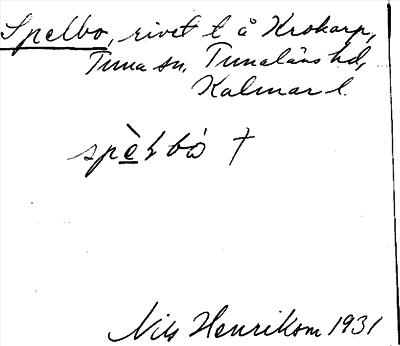 Spelbo, rivet t å Krokarp,
Tuna sn, Tunaläns hd,
Kalmar l.
spèlbò †
Nils Henrikson 1931